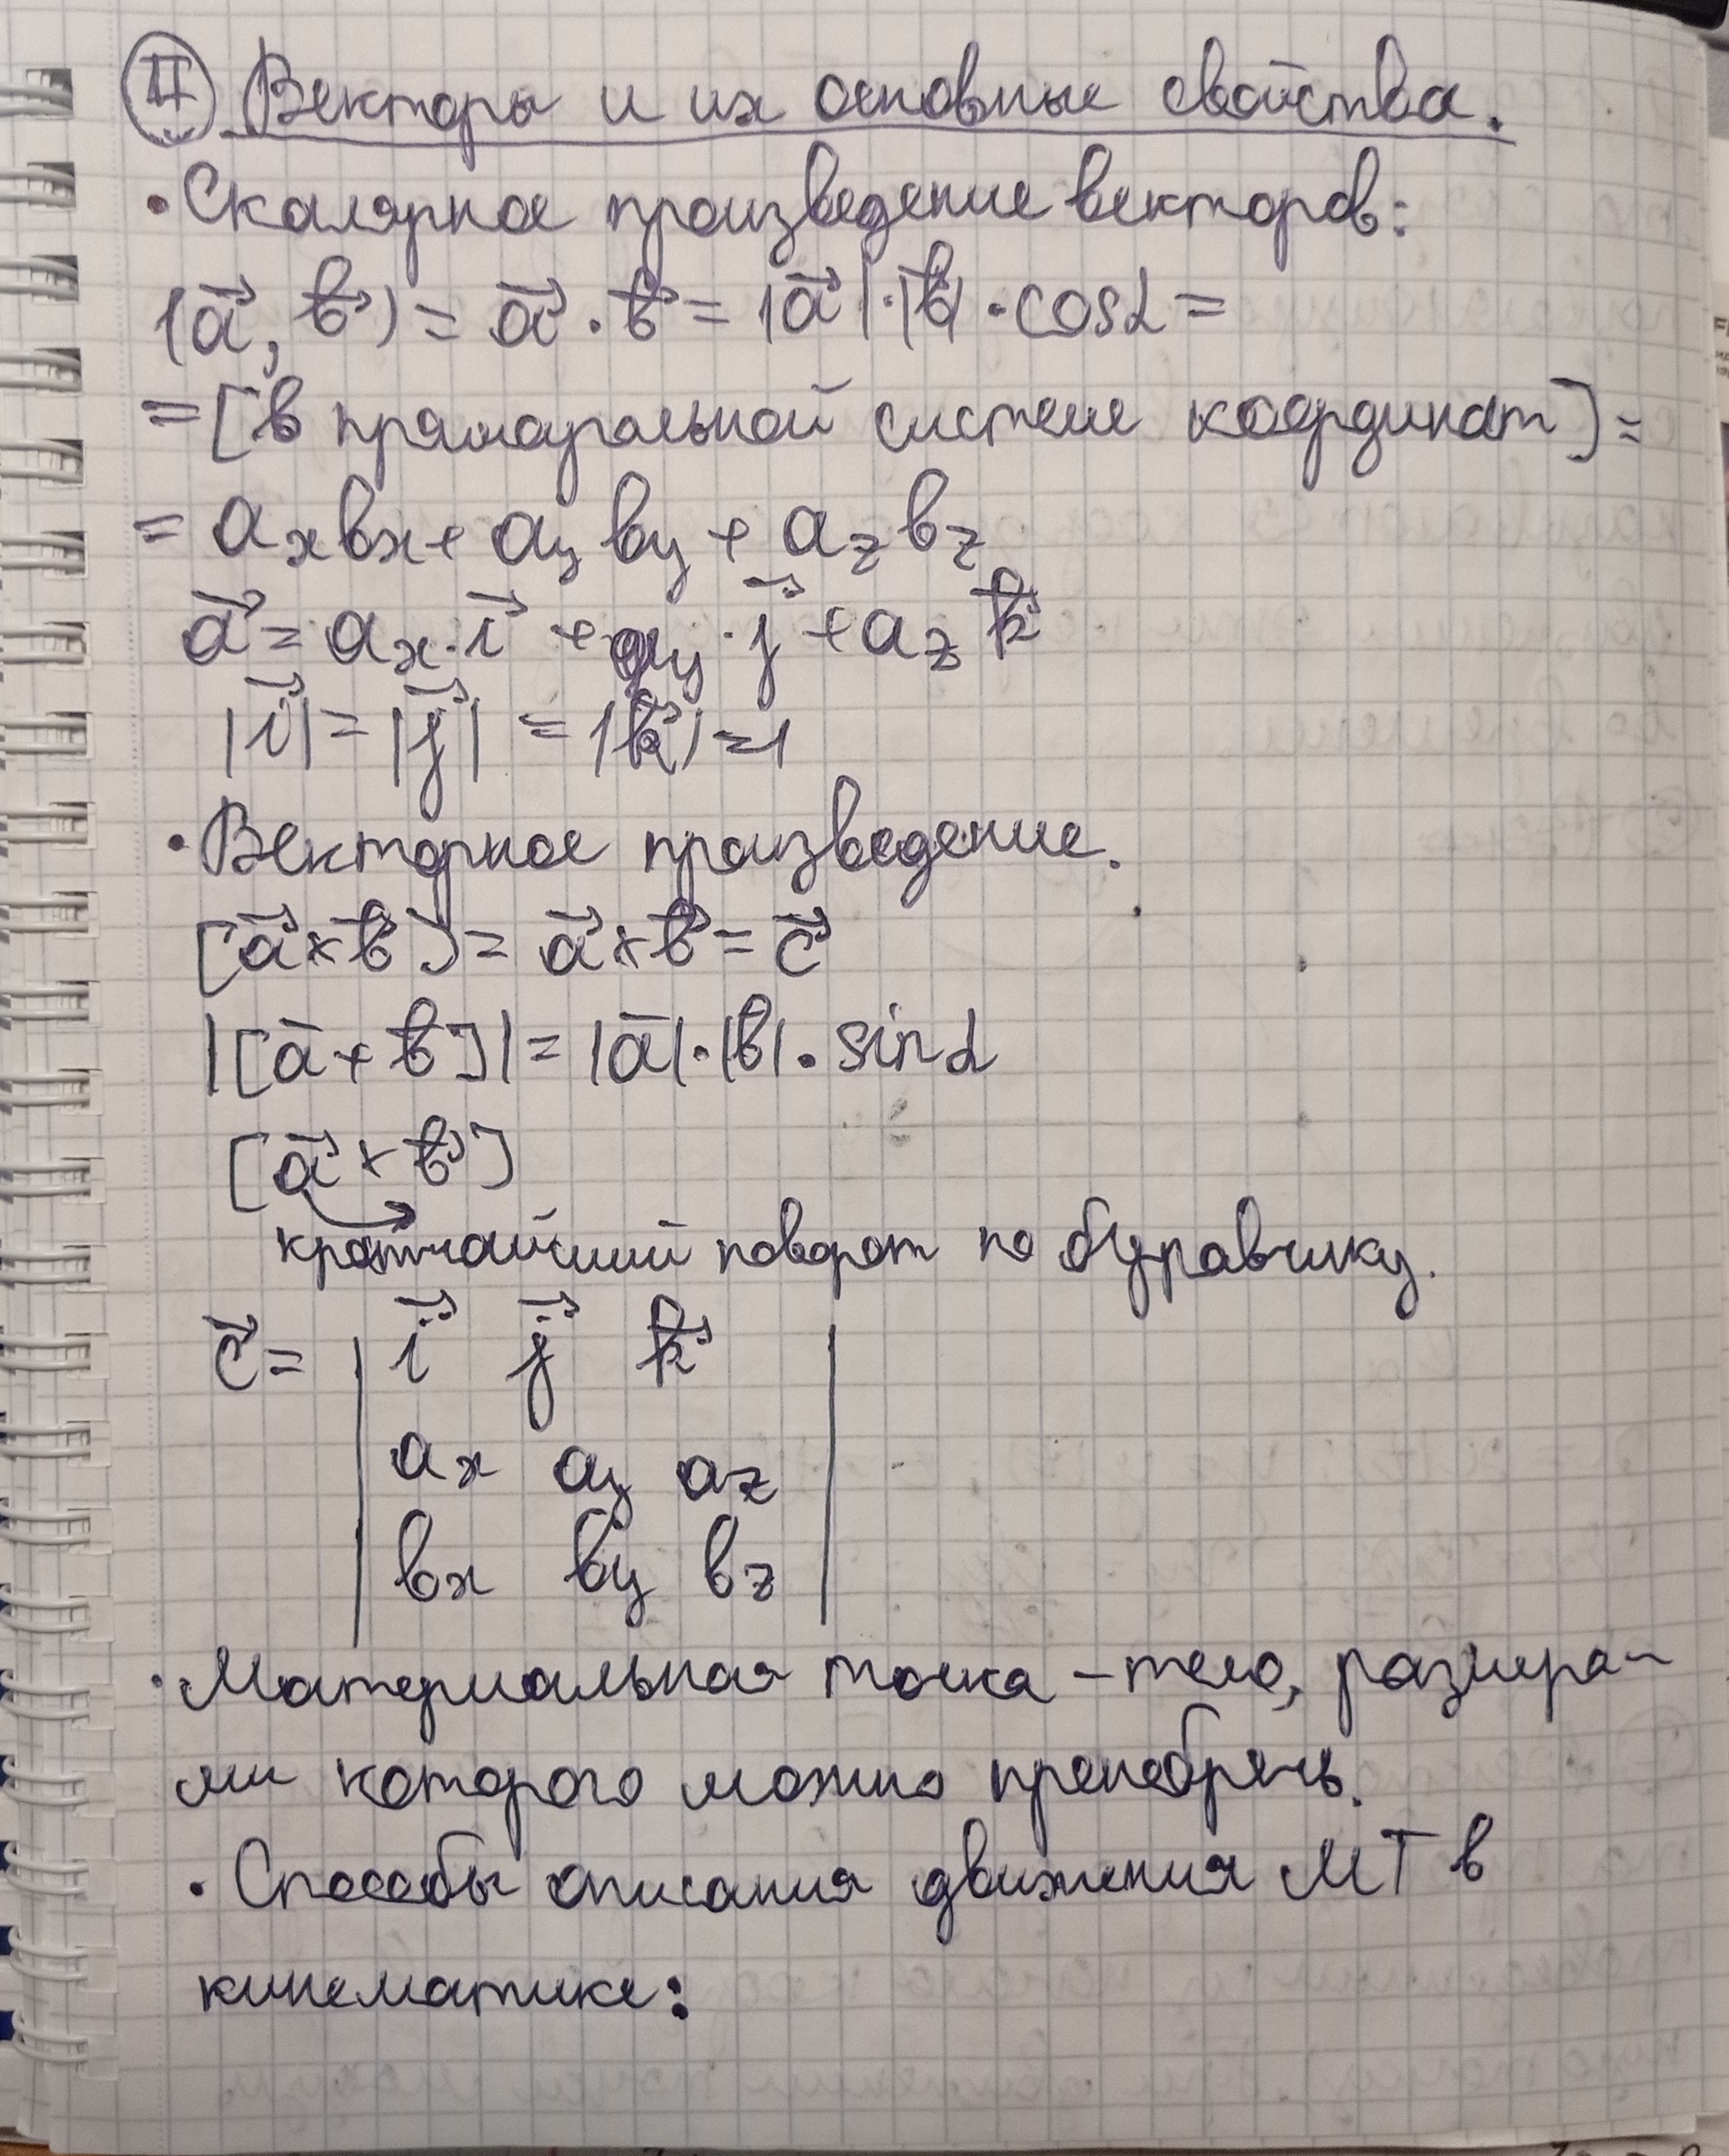 II Векторы и их основные свойства.
• Скалярное произведение векторов:
(a⃗, b⃗) = a⃗ · b⃗ = |a⃗| · |b⃗| · cosα =
= [в прямоугольной системе координат] =
= aₓbₓ + a_y b_y + a_z b_z
a⃗ = aₓ · i⃗ + a_y · j⃗ + a_z k⃗
|i⃗| = |j⃗| = |k⃗| = 1
• Векторное произведение.
[a⃗ × b⃗] = a⃗ × b⃗ = c⃗
|[a⃗ × b⃗]| = |a⃗| · |b⃗| · sinα
[a⃗ × b⃗]
кратчайший поворот по буравчику.
c⃗ = | i⃗ j⃗ k⃗ |
| aₓ a_y a_z |
| bₓ b_y b_z |
• Материальная точка – тело, размера-
ми которого можно пренебречь.
• Способы описания движения МТ в
кинематике: